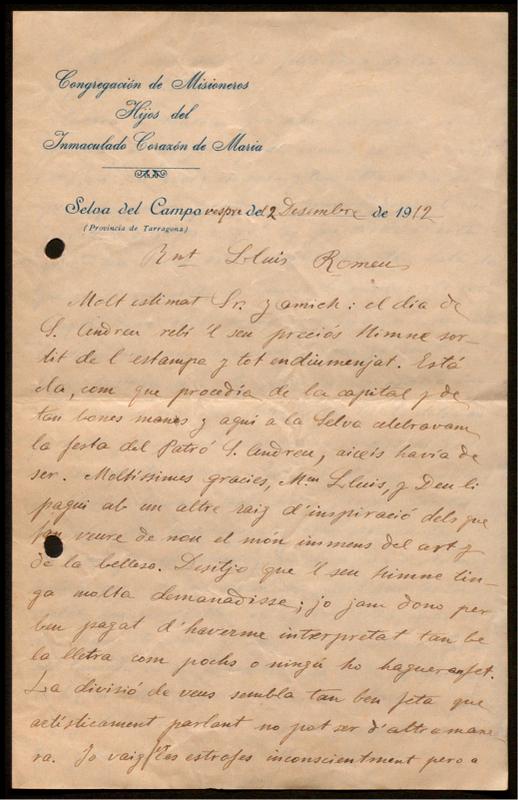 Congregación de Misioneros
Hijos del
Inmaculado Corazón de Maria
Selva del Campo vespre de 12 Desembre de 1912
(Provincia de Tarragona)
Rnt Lluis Romeu
Molt estimat Sr. y amich: el dia de
S. Andreu rebí 'l seu preciós Himne sor-
tit de l'estampa y tot endiumenjat. Está
cla, com que procedía de la capital y de
tan bones manes y aquí a la Selva celebravam
la festa del Patró S. Andreu, aixeis havía de
ser. Moltíssimes gracies, Mn Lluis, y Deu li
pagui ab un altre raig d'inspiració dels que
fan veure de nou el món immens del art y
de la bellesa. Desitjo que 'l seu himne tin-
ga molta demanadisse; jo jam dono per
ben pagat d'haverme interpretat tan be
la lletra com pochs o ningú ho hagueran fet.
La divisió de veus sembla tan ben feta que
artísticament parlant no pot ser d'altra mane-
ra. Jo vaig les estrofes inconscientment pero a